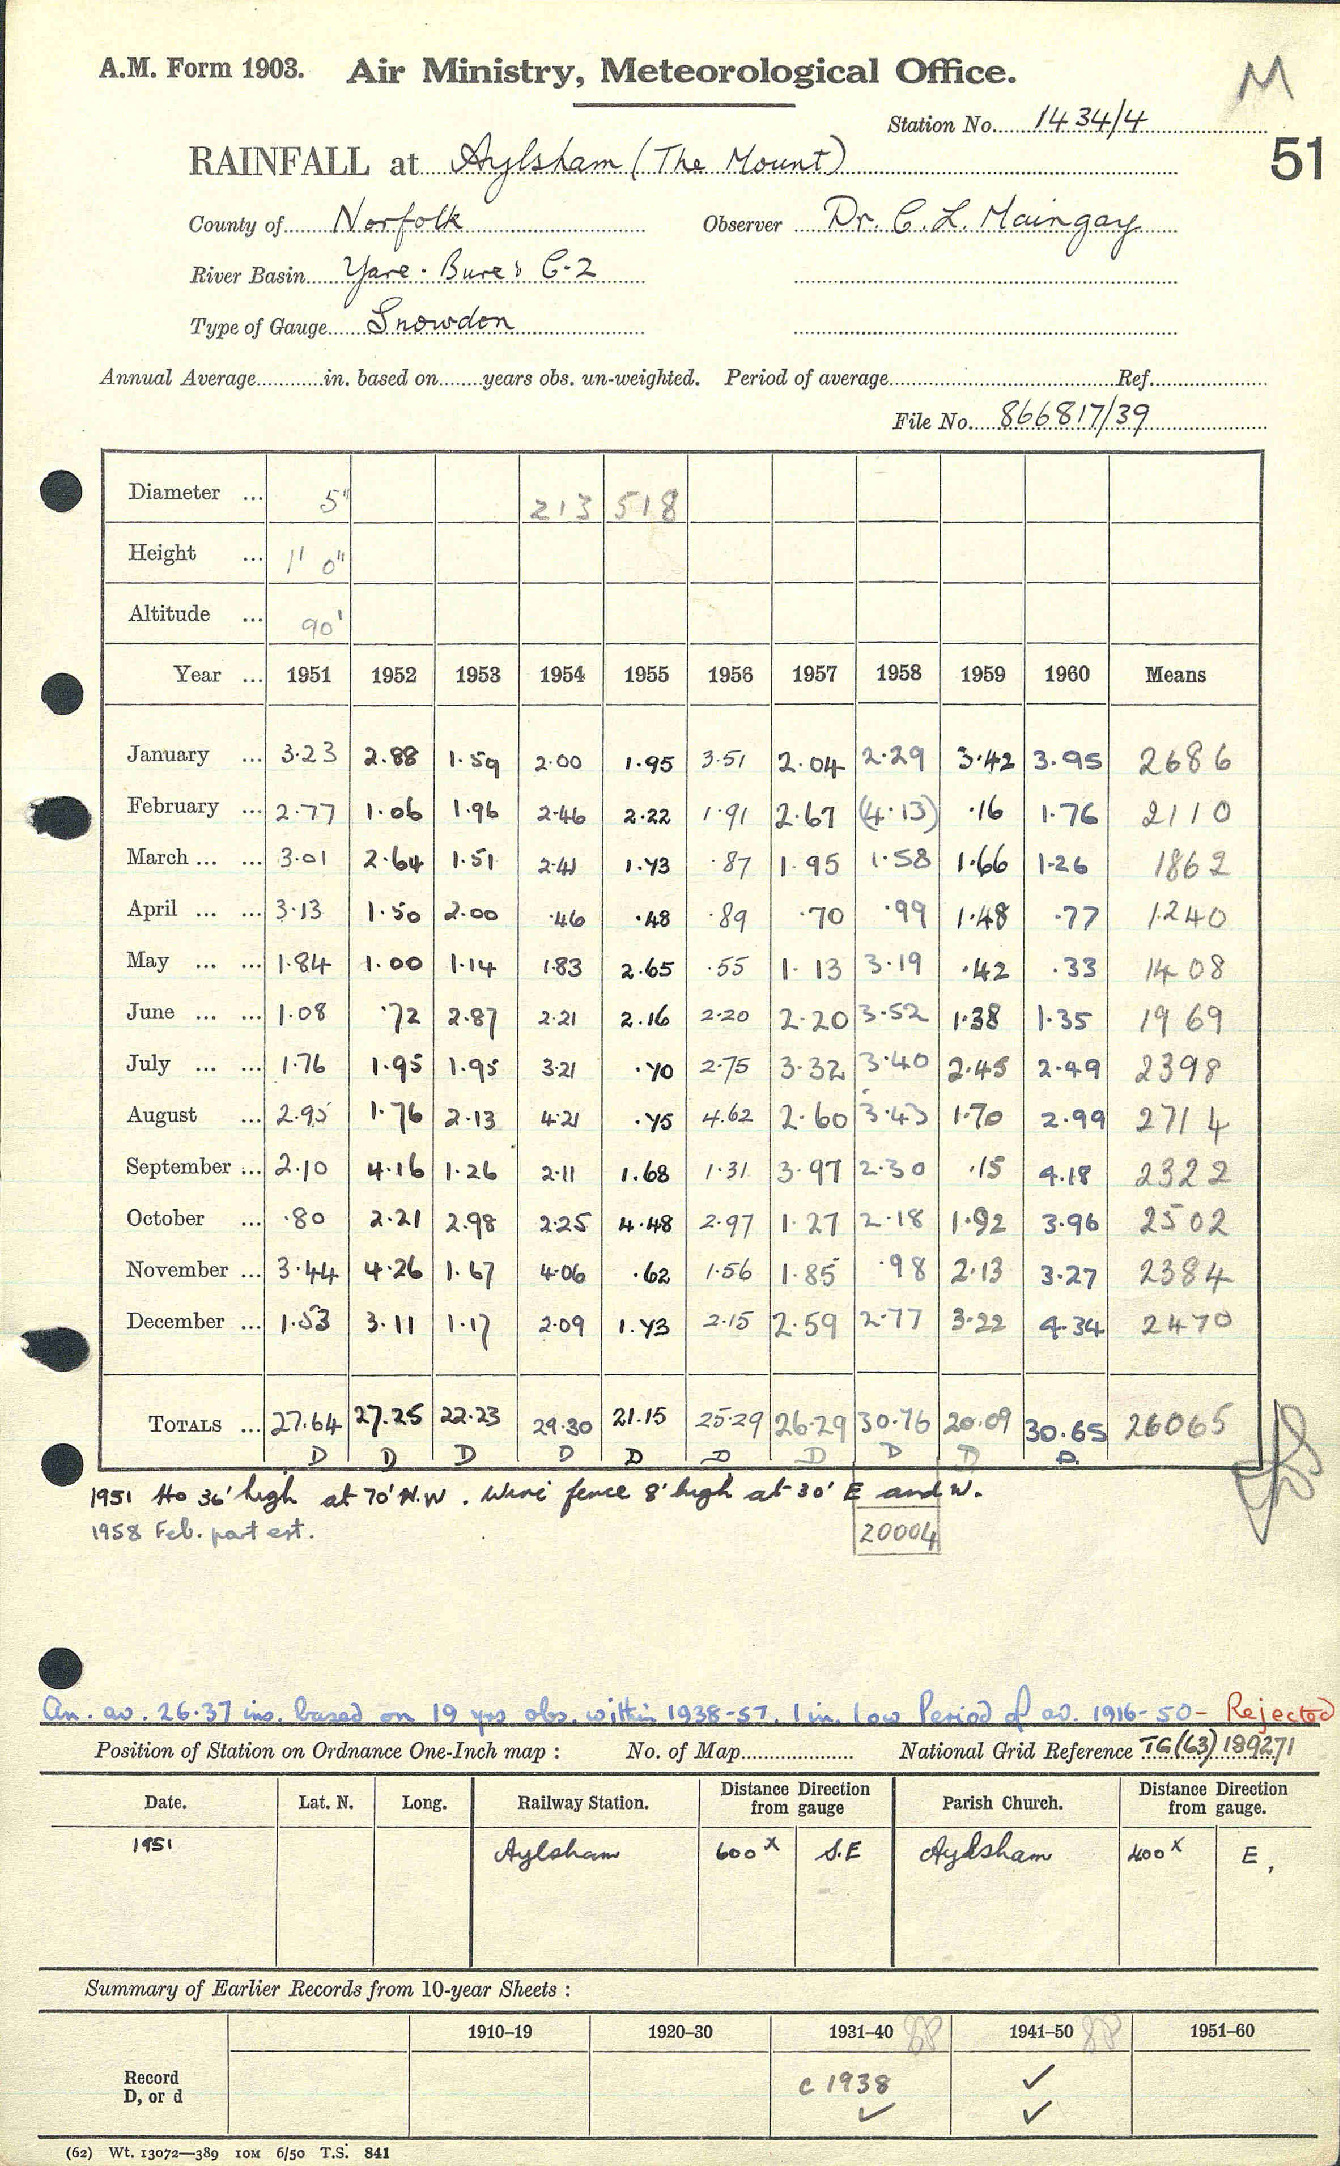 A.M. Form 1903. Air Ministry, Meteorological Office.
M
Station No. 1434/4
51
RAINFALL at Aylsham (The Mount)
County of Norfolk Observer Dr. C. L. Maingay
River Basin Yare. Bure: C-2
Type of Gauge Snowdon
Annual Average in. based on years obs. un-weighted. Period of average Ref.
File No. 866817/39
Diameter ... 5" 213 518
Height ... 1' 0"
Altitude ... 90'
Year ... 1951 1952 1953 1954 1955 1956 1957 1958 1959 1960 Means
January ... 3.23 2.88 1.59 2.00 1.95 3.51 2.04 2.29 3.42 3.95 2686
February ... 2.77 1.06 1.96 2.46 2.22 1.91 2.67 (4.13) .16 1.76 2110
March ... ... 3.01 2.64 1.51 2.41 1.43 .87 1.95 1.58 1.66 1.26 1862
April ... ... 3.13 1.50 2.00 .46 .48 .89 .70 .99 1.48 .77 1240
May ... ... 1.84 1.00 1.14 1.83 2.65 .55 1.13 3.19 .42 .33 1408
June ... ... 1.08 .72 2.87 2.21 2.16 2.20 2.20 3.52 1.38 1.35 1969
July ... ... 1.76 1.95 1.95 3.21 .70 2.75 3.32 3.40 2.45 2.49 2398
August ... 2.95 1.76 2.13 4.21 .75 4.62 2.60 3.43 1.70 2.99 2714
September ... 2.10 4.16 1.26 2.11 1.68 1.31 3.97 2.30 .15 4.18 2322
October ... .80 2.21 2.98 2.25 4.48 2.97 1.27 2.18 1.92 3.96 2502
November ... 3.44 4.26 1.67 4.06 .62 1.56 1.85 .98 2.13 3.27 2384
December ... 1.53 3.11 1.17 2.09 1.73 2.15 2.59 2.77 3.22 4.34 2470
TOTALS ... 27.64 27.25 22.23 29.30 21.15 25.29 26.29 30.76 20.09 30.65 26065
D D D D D D D D D D
1951 Ho 36' high at 70' N.W. Wire fence 8' high at 30' E and W.
1958 Feb. part est.
20004
An. av. 26.37 ins. based on 19 yrs obs. within 1938-57. 1 in. low Period of av. 1916-50 - Rejected
Position of Station on Ordnance One-Inch map : No. of Map National Grid Reference TG(63) 189271
Date. Lat. N. Long. Railway Station. Distance Direction from gauge Parish Church. Distance Direction from gauge.
1951 Aylsham 600x S.E Aylsham 400x E,
Summary of Earlier Records from 10-year Sheets :
1910–19 1920–30 1931–40 1941–50 1951–60
Record
D, or d
c 1938 ✓
✓ ✓
(62) Wt. 13072—389 10M 6/50 T.S. 841